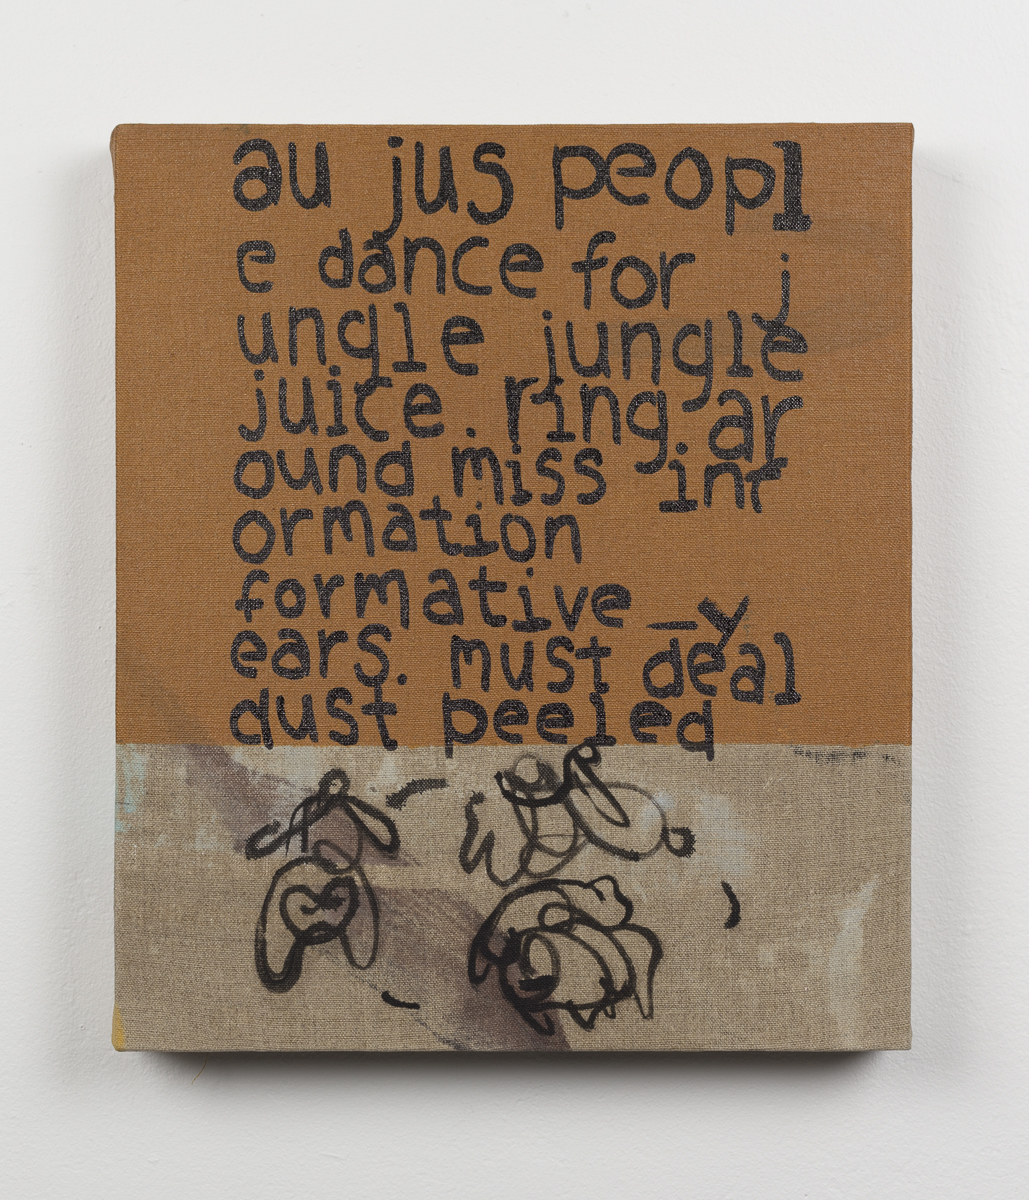 au jus peopl
e dance for j
ungle jungle
juice. ring.ar
ound miss inf
ormation
formative _y
ears. must deal
dust peeled